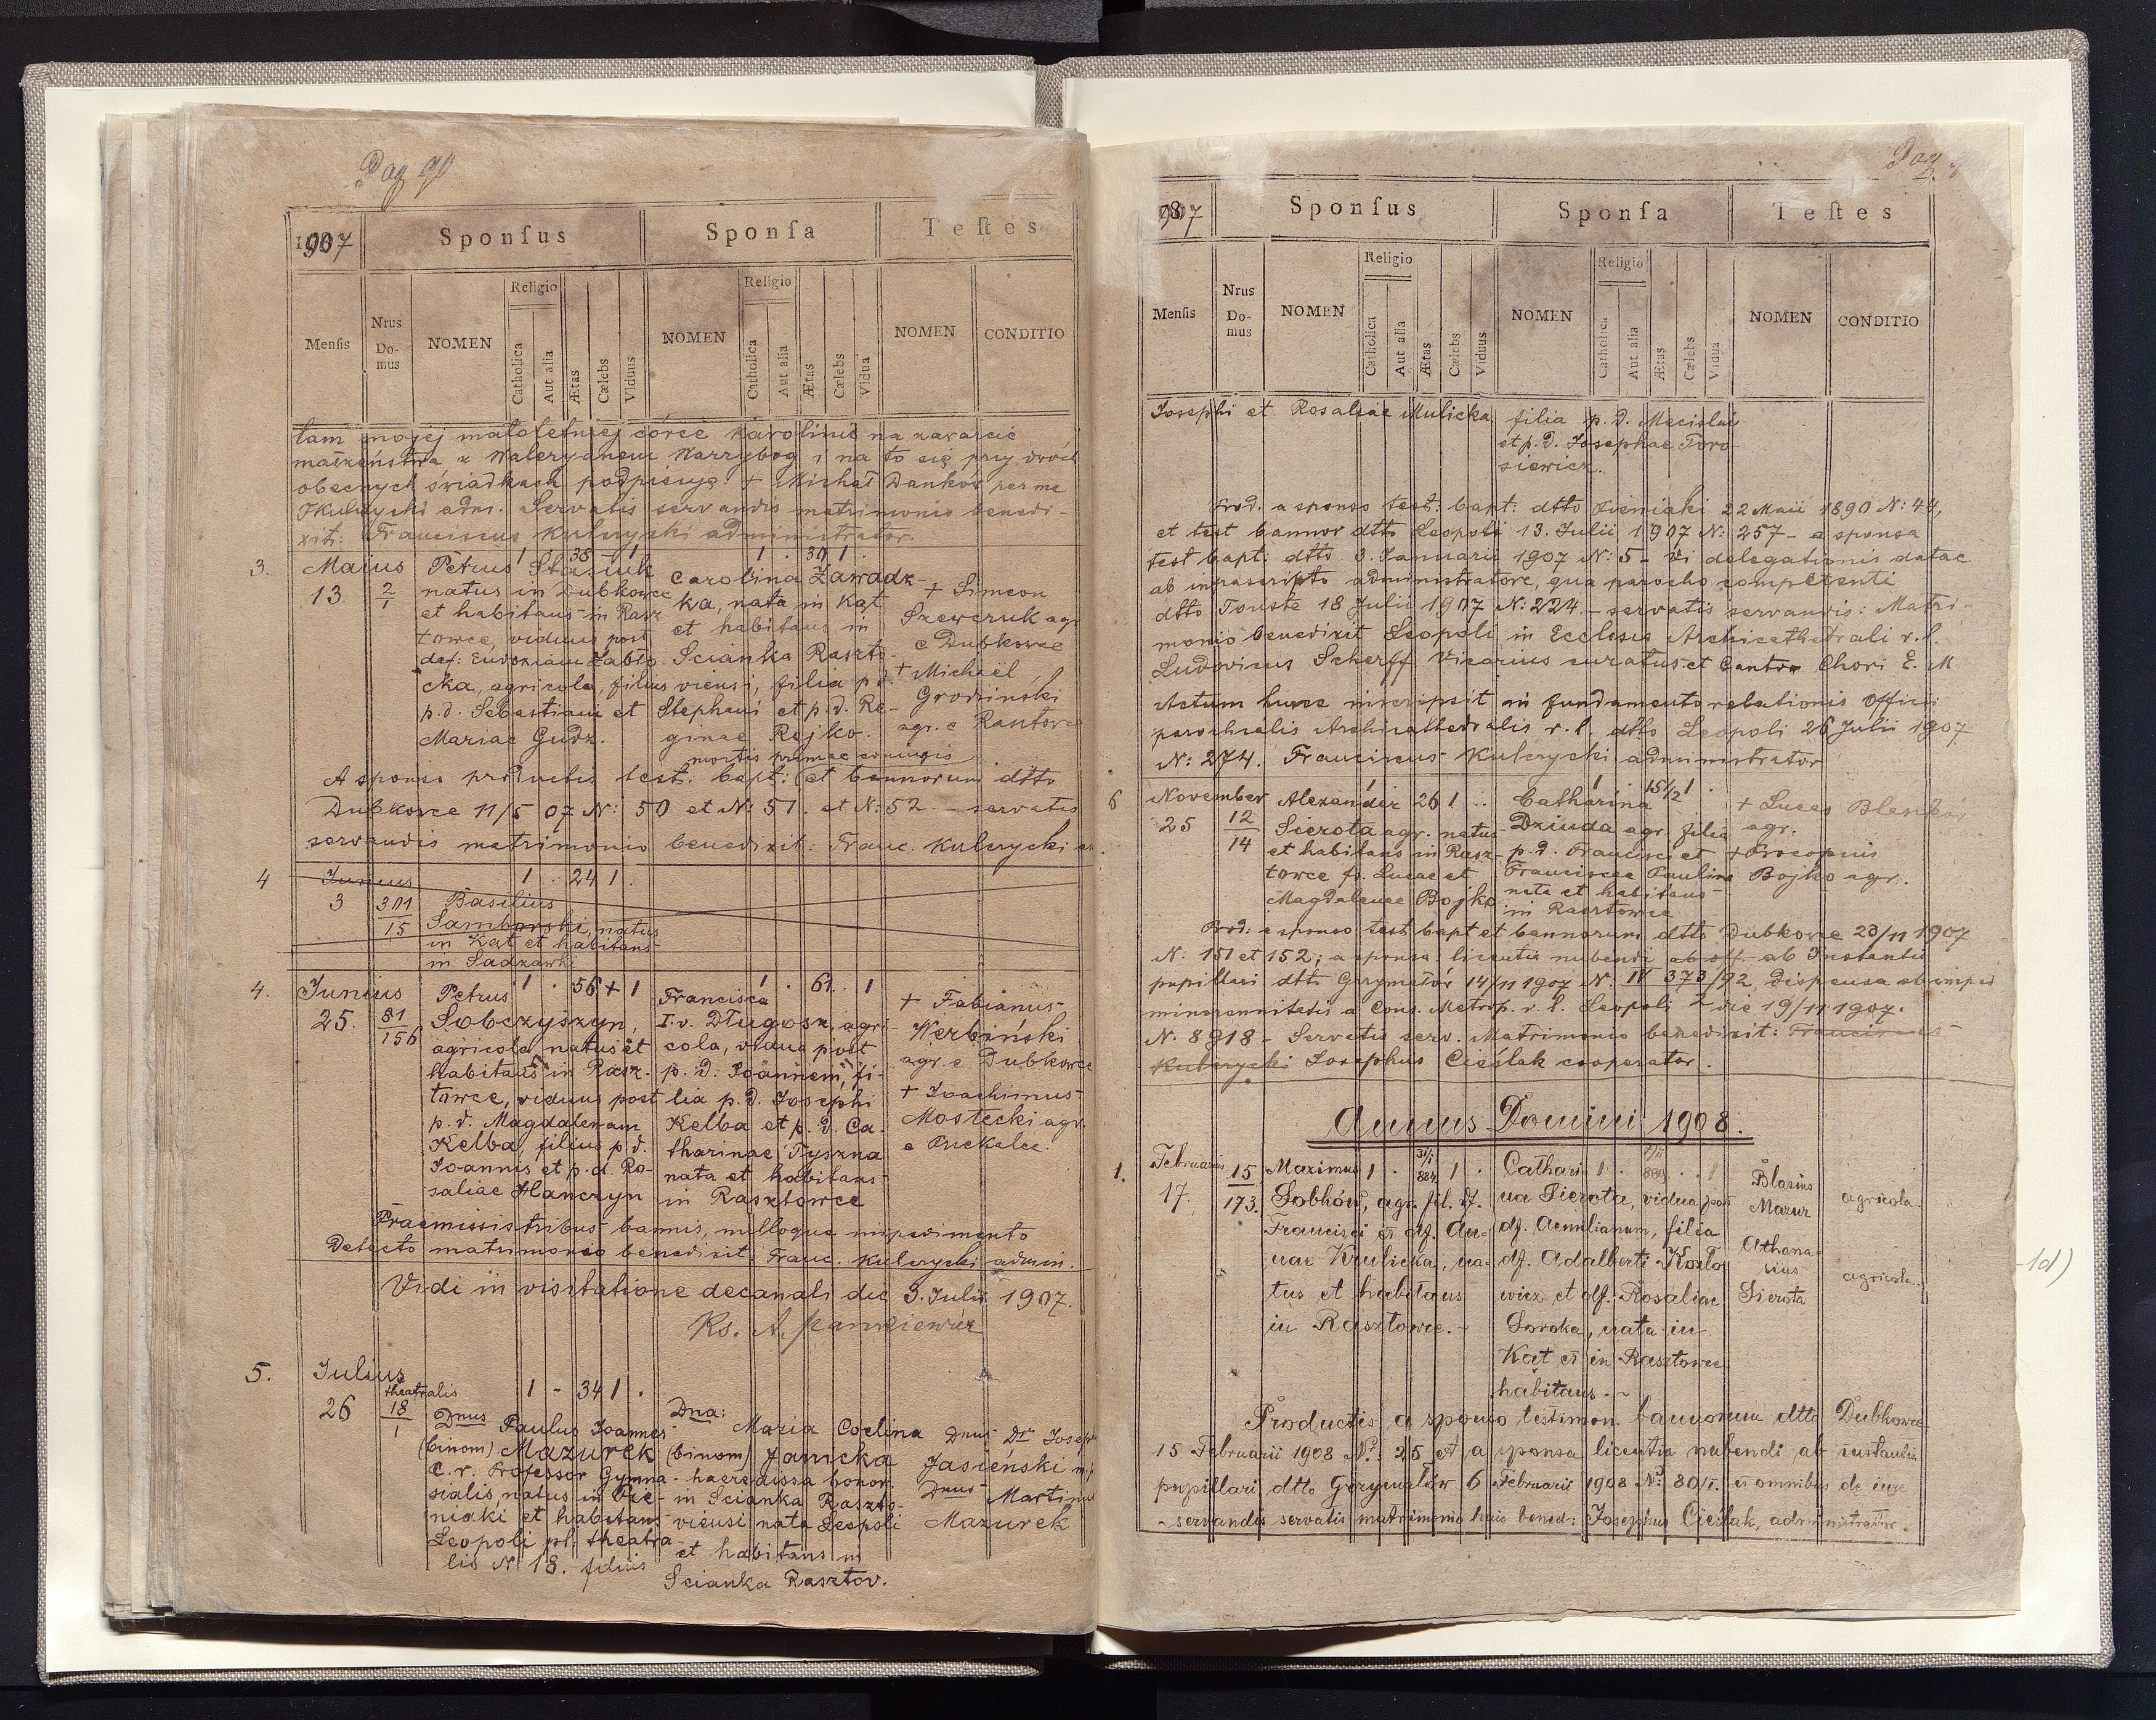 Pag 90
1907 Sponſus Sponſa Teſtes
Menſis Nrus Do- mus NOMEN Religio Catholica Aut alia Ætas Cælebs Viduus NOMEN Religio Catholica Aut alia Ætas Cælebs Vidua NOMEN CONDITIO
tam mojej małoletniej córce Karolinie na zawarcie
małżeństwa z Waleryanem Warzybog i na to się przy dwóch
obecnych świadkach podpisuję + Michał Dańków per me
FKulczycki adm. Servatis servandis matrimonio benedi-
xit: Franciscus Kulczycki administrator.
3. Maius 13 2/1
Petrus 1 38 - 1
Stasiuk
natus in Dubkowce
et habitans in Rasz
towce, viduus post
def: Eudoxiam Zabło
cka, agricola, filius
p.d. Sebastiani et
Mariae Gudz.
1 . 30 1 .
Carolina Zawadz-
ka, nata in Kąt
et habitans in
Scianka Raszto-
viensi, filia p.d.
Stephani et p.d. Re-
ginae Rojko.
+ Simeon
Szewczuk agr
e Dubkowce
+ Michaël
Grodziński
agr. e Rasztowce
mortis primae coniugis
A sponso productis test: bapt: et bannorum dtto
Dubkowce 11/5 07 N: 50 et N: 51. et N: 52. - servatis
servandis matrimonio benedixit: Franc. Kulczycki
4 Junius 1 . 24 1 .
3 301/15 Basilius
Samborski, natus
in Kąt et habitans
in Sadzawki
4. Junius 25. 81/156
Petrus 1 . 56 + 1
Sobczyszyn,
agricola natus et
habitans in Rasz-
towce, viduus post
p.d. Magdalenam
Kelba, filius p.d.
Joannis et p.d. Ro-
saliae Hanczyn
Francisca 1 . 61 . 1
I.v. Długosz, agri-
cola, vidua post
p.d. Joannem, fi-
lia p.d. Josephi
Kelba et p.d. Ca-
tharinae Tyszna
nata et habitans
in Rasztowce
+ Fabianus
Werbiński
agr. e Dubkowce
+ Joachimus
Mostecki agr.
e Puckalce.
Praemissis tribus bannis, nulloque impedimento
Detecto matrimonio benedixit: Franc. Kulczycki admin.
Vidi in visitatione decanali die 3. Julii 1907.
Ks. A.
5. Julius 26 theatralis 18/1
1 - 34 1 .
Dnus Paulus Joannes
(binom) Mazurek
C.r. Professor Gymna-
sialis, natus in Pie-
niaki et habitans
Leopoli pl. theatra-
lis N. 18. filius
Dna: Maria Coelina
(binom) Janicka
haeredissa bonor.
in Scianka Raszto-
viensi nata Leopoli
et habitans in
Scianka Rasztov.
Dnus Dr Joseph
Jasieński
Dnus Martinus
Mazurek
Pag.
1907 Sponſus Sponſa Teſtes
Menſis Nrus Do- mus NOMEN Religio Catholica Aut alia Ætas Cælebs Viduus NOMEN Religio Catholica Aut alia Ætas Cælebs Vidua NOMEN CONDITIO
Josephi et Rosaliae Mulicka
filia p.d. Mecislai
et p.d. Josephae Toro-
siewicz.
Prod. a sponso test: bapt: dtto Pieniaki 22 Maii 1890 N: 44,
et test bannor dtto Leopoli 13. Julii 1907 N: 257 - a sponsa
test bapt: dtto 3. Januarii 1907 N: 5 - Vi delegationis datae
ab infrascripto administratore, qua parocho competenti
dtto Touste 18 Julii 1907 N: 224. - servatis servandis: Matri-
monio benedixit Leopoli in Ecclesia Archicathedrali r. l.
Ludovicus Scherff Vicarius curatus et Cantor Chori E. M.
Actum hunc inscripsit in fundamento relationis Officii
parochialis Archicathedralis r. l. dtto Leopoli 26 Julii 1907
N: 274. Franciscus Kulczycki administrator
6 November 25 12/14
Alexander 26 1 . .
Sierota agr. natus
et habitans in Rasz-
towce f. Lucae et
Magdalenae Bojko
1 . 15 1/2 1 .
Catharina
Dziuda agr. filia
p.d. Francisci et
Franciscae Paulina
nata et habitans
in Rasztowce
+ Lucas
agr.
+ Procopius
Bojko agr.
Prod: a sponso test bapt et bannorum dtto Dubkowce 23/11 1907
N. 151 et 152; a sponsa: licentia nubendi ab off. ab Instantia
pupillari dtto Grzymałów 14/11 1907 N. IV 373/92, Dispensa ab imped
minorennitatis a Cons. Metrop. r. l. Leopoli die 19/11 1907.
N. 8918 - Servatis serv. Matrimonio benedixit: Franciscus
Kulczycki Josephus Cieślak cooperator.
Annus Domini 1908.
1. Februarius 17. 15/173.
Maximus 1 . 884 1 .
Sobków, agr. fil. df.
Francisci et df. An-
nae Krulicka, na-
tus et habitans
in Rasztowce. -
Cathari- 1 . 889 . . 1
na Sierota, vidua post
df. Aemilianum, filia
df. Adalberti Kozło
wicz et df. Rosaliae
Soroka, nata in
Kąt et in Rasztowce
habitans. -
Blasius
Mazur agricola.
Athana-
sius
Sierota agricola.
1d)
Productis, a sponso testimon. bannorum dtto Dubkowce
15 Februarii 1908 No: 25 et a sponsa licentia nubendi, ab instantia
pupillari dtto Grzymałów 6 Februarii 1908 No 80/I. et omnibus de iure
- servandis servatis matrimonio huic bened: Josephus Cieślak, administrator.